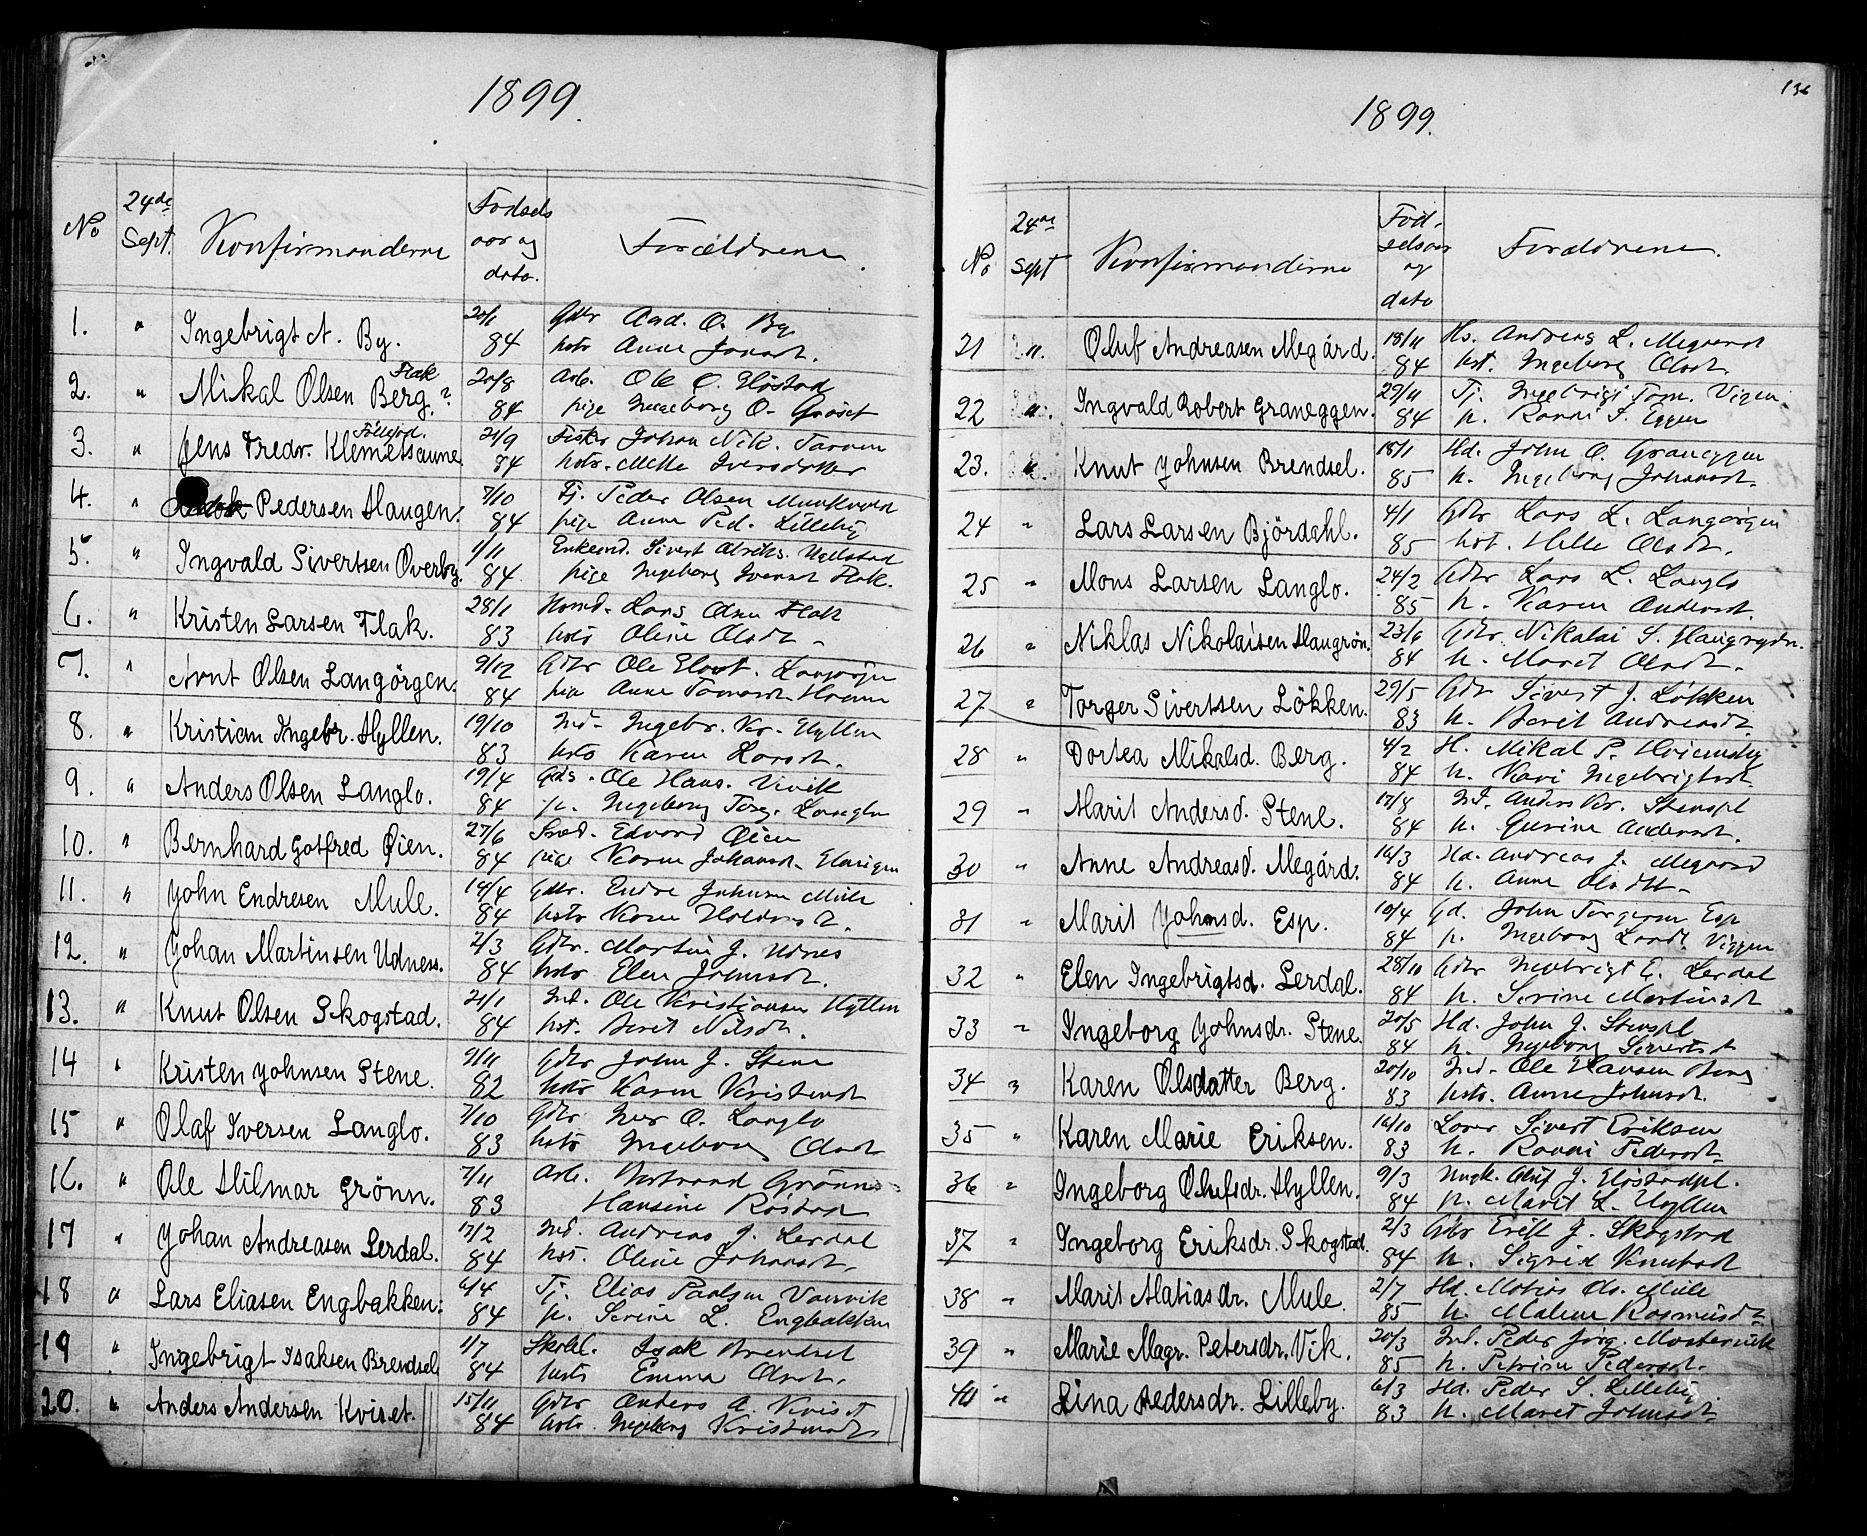 1899.
No
24de Sept.
Konfirmanderne
Fødsels aar og dato.
Forældrene.
1. " Ingebrigt A. By. 20/1 84 Gdbr And. O. By
hstr Anne Jonsdt.
2. " Mikal Olsen Berg? Flak 20/8 84 Arb. Ole O. Høstad
pige Ingeborg O. Grøset
3. " Jens Fredr. Klemetsaune 21/9 84 Fisker Johan Nik.
hstr. Mette Iversdatter
4. " Pedersen Haugen. 7/10 84 Tj. Peder Olsen Munkvold
pige Anne Ped. Lilleby
5. " Ingvald Sivertsen Overby. 1/11 84 Enkemd. Sivert
pige Ingeborg Flak.
6. " Kristen Larsen Flak. 28/1 83 Lars Olsen Flak
hstr Oline Olsdt.
7. " Arnt Olsen Langörgen. 9/12 84 Gdbr Ole Langørgen
pige Anne
8. " Kristian Ingebr. Hyllen. 19/10 83 Ind. Ingebr. Kr. Hyllen
hstr Karen Larsdt.
9. " Anders Olsen Langlo. 19/4 84 Ole Hans. Vivik
p. Ingeborg Torg. Langlo
10. " Bernhard Gotfred Øien. 27/6 84 Edvard Øien
pige Karen Johansdt.
11. " Johan Endresen Mule. 14/4 84 Gdbr. Endre Johnsen Mule
hstr Karen
12. " Johan Martinsen Udness. 2/3 84 Gdbr. Martin J. Udnes
hstr Elen Johnsdt.
13. " Knut Olsen Skogstad. 21/1 84 Ind. Ole Kristiansen Hyllen
hst. Berit Nilsdt.
14 " Kristen Johnsen Stene. 9/11 82 Gdbr John J. Stene
hstr Karen Kristensdt
15 " Olaf Iversen Langlo. 7/10 83 Gdbr Iver O. Langlo
hstr Ingeborg Olsdt
16. " Ole Hilmar Grönn. 7/11 83 Arb. Bertrand Grønn
Hansine Røstad
17 " Johan Andreasen Lerdal. 17/2 84 Ind. Andreas J. Lerdal
hst. Oline Johansdt.
18 " Lars Eliasen Engbakken. 6/4 84 Tj. Elias Paulsen Vanvik
p. Serine L. Engbakken
19 " Ingebrigt Isaksen Brendsel 1/7 84 Skolel. Isak Brendsel
hstr Emma Olsdt.
20. " Anders Andersen Kviset. 15/11 84 Gdbr Anders A. Kviset
hstr. Ingeborg Kristensdt.
136
1899.
No
24de Sept
Konfirmanderne
Fødselsaar og dato
Forældrene.
21 " Oluf Andreasen Megård. 18/11 84 Hs. Andreas L. Megaard
hst. Ingeborg Olsdt.
22 " Ingvald Robert Graneggen. 29/11 84 Tj. Ingebrigt Tom. Viggen
p. Ronni I. Eggen
23. " Knut Johnsen Brendsel. 18/1 85 Hd. John O. Graneggen
h. Ingeborg Johansdt.
24 " Lars Larsen Björdahl. 4/1 85 Gdbr Lars L. Langørgen
hst. Helle Olsdt.
25 " Mons Larsen Langlo. 24/2 85 Gdbr Lars L. Langlo
h. Karen Andersdt.
26 " Niklas Nikolaisen Haugrøn. 23/6 84 Gdbr. Nikolai S.
h. Maret Olsdt.
27 " Torger Sivertsen Lökken. 29/5 83 Gdbr Sivert J. Løkken
h. Berit Andersdt.
28 " Dortea Mikalsd. Berg. 4/2 84 H. Mikal P.
h. Kari Ingebrigtsdt.
29 " Marit Andersd. Stene. 17/8 84 Ind. Anders Kr. Stenspl
h. Gurine Andersdt.
30 " Anne Andreasd. Megård. 16/3 84 Hd. Andreas J. Megaard
h. Anne Olsdtt.
31 " Marit Johnsd. Esp. 10/4 84 Gd. John Torgersen Esp
p. Ingeborg Larsdt. Viggen
32 " Elen Ingebrigtsd. Lerdal. 28/10 84 Gdbr Ingebrigt E. Lerdal
h. Serine Martinsdt
33 " Ingeborg Johnsdr. Stene. 20/5 84 Hd. John J. Stenspl
h. Ingeborg Sivertsdt
34 " Karen Olsdatter Berg. 20/10 83 Ind. Ole Hansen Berg
hstr. Anne Johnsdt.
35 " Karen Marie Eriksen. 16/10 83 Sivert Eriksen
h. Ronni Pedersdt.
36 " Ingeborg Olufsdr. Hyllen. 9/3 84 Ungk. Oluf J. Høstadpl.
p. Marit L. Hyllen
37 " Ingeborg Eriksdr. Skogstad. 2/3 84 Gdbr Erik J. Skogstad
h. Sigrid Knutsdt
38 " Marit Matiasdr. Mule. 2/7 85 Hd. Matias Ol. Mule
h. Malene Rasmusdt
39 " Marie Magr. Petersdr. Vik. 20/3 85 Ind. Peder Jørg. Mostervik
h. Serine Pedersdt.
40 " Lina Pedersdr. Lilleby. 6/3 83 Hd. Peder S. Lilleby
h. Maret Johnsdt.